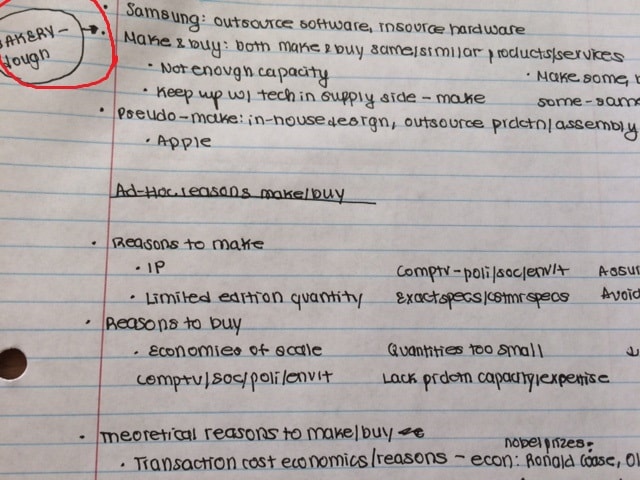 • Samsung: outsource software, insource hardware
BAKERY –
dough
• Make & buy: both make & buy same/similar products/services
• Not enough capacity • Make some,
• Keep up w/ tech in supply side – make some – same
• Pseudo-make: in-house design, outsource prdctn/assembly
• Apple
Ad-Hoc reasons make/buy
• Reasons to make
• IP comptv-poli/soc/envit Assur
• Limited edition quantity Exact specs/cstmr specs Avoid
• Reasons to buy
• Economies of scale Quantities too small
comptv/soc/poli/envit Lack prdctn capacity/expertise
• Theoretical reasons to make/buy
nobel prizes:
• Transaction cost economics/reasons – econ: Ronald Coase, Ol